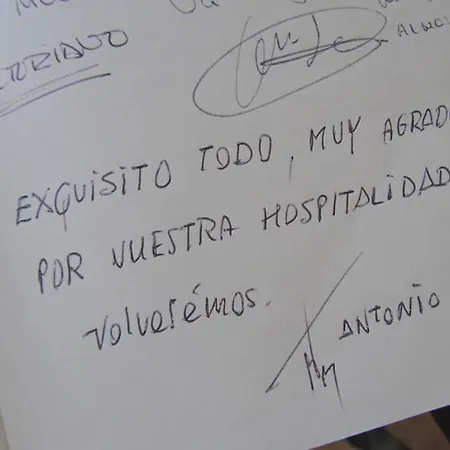 EXQUISITO TODO, MUY AGRAD
POR NUESTRA HOSPITALIDAD
Volverémos.
ANTONIO